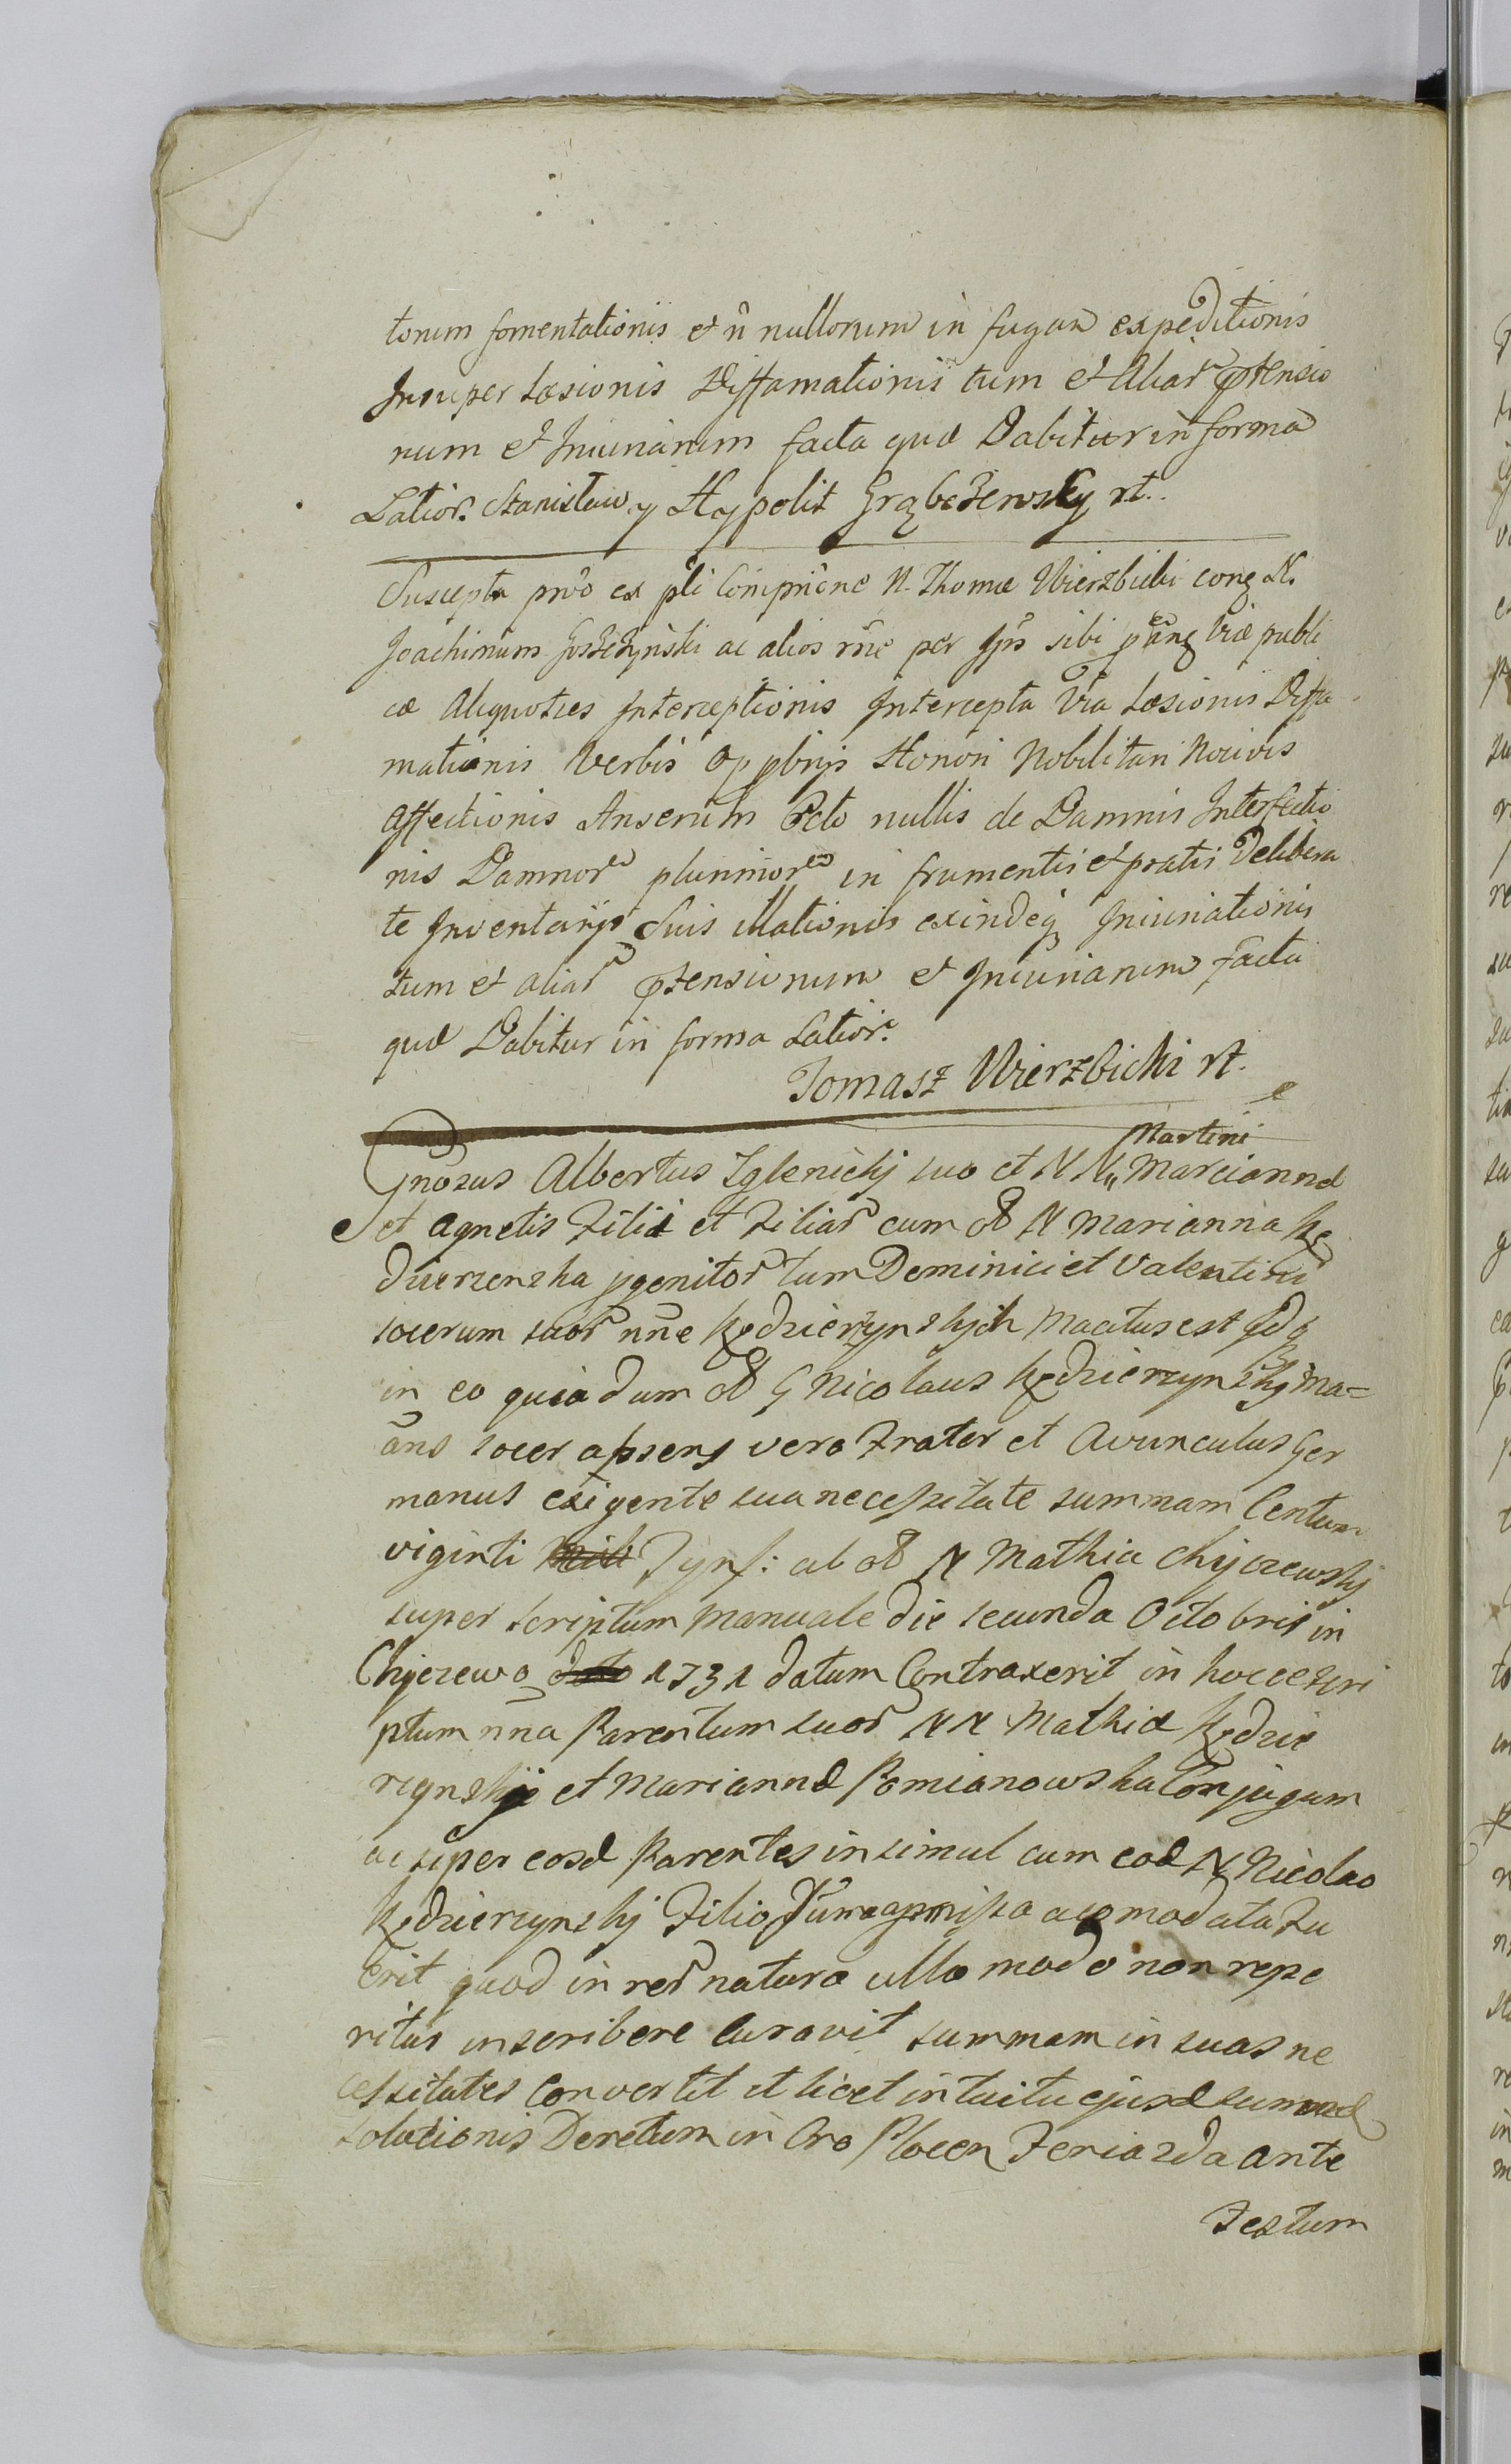 torum fomentationis et n̄ nullorum in fugam expeditionis
Insuper Læsionis Diffamationis tum et Aliar ptensio
num et Iniuriarum facta quæ Dabitur in forma
Latior. Stanisław y Hypolit Grąbczewsky rt.
Suscepta pro ex pli Comp N. Thomæ Wierzbicki cong N.
Joachimum Goszczynski ac alios rne per Ips sibi Viæ publi
cæ Aliquoties Interceptionis Intercepta Via Læsionis Diffa
mationis Verbis Oppbrijs Honori Nobilitari Nocivis
Affectionis Anserum Octo nullis de Damnis Interfectio
nis Damnor plurimor in frumentis et pratis Delibera
te Inventarijs Suis illationis exindeq Iniuriationis
tum et aliar ptensionum et Iniuriarum facta
quæ Dabitur in forma Latior.
Tomasz Wierzbicki rt.
Martini
Gnosus Albertus Zglenickj suo et N N Mariannæ
et Agnetis Filii et Filiar cum olī N Marianna Kę
dzierzenska pgenitor tum Dominici et Valentini
socerum suor nne Kędzierzynskjch Mactus est
in eo quia dum olī G Nicolaus Kędzierzynskj ma=
ans socer apsens vero Frater et Avunculus Ger
manus exigente sua necessitate summam Centum
viginti Tynf: ab olī N Mathia Chyczewskj
super scriptum manuale die secunda Octobris in
Chyczewo 1731 datum Contraxerit in hocce scri
ptum nna Parentum suor NN Mathiæ Kędzie
rzynskj et Mariannæ Pomianowska Conjugum
ac super eosd Parentes insimul cum eod N Nicolao
Kędzierzynskj Filio acomodata fu
erit quod in rer natura ullo modo non repe
ritur inscribere Curavit summam in suas ne
cessitates Convertit et licet intuitu ejusd summæ
solutionis Decretum in Cro Plocen Feria 2da ante
Festum